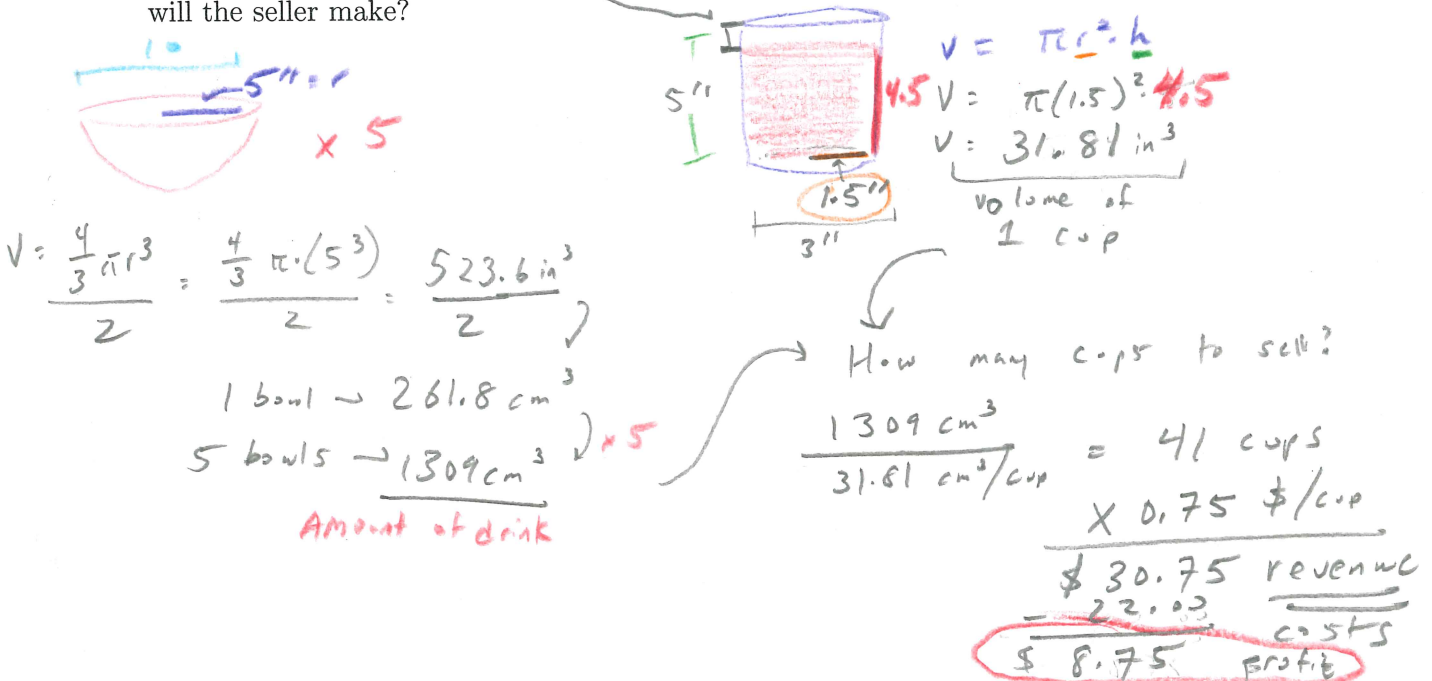 will the seller make?
10
5" = r
x 5
V = 4/3 πr³ / 2 = 4/3 π·(5³) / 2 = 523.6 in³ / 2
1 bowl → 261.8 cm³
5 bowls → 1309 cm³
x 5
Amount of drink
5"
4.5
1.5"
3"
V = πr²·h
V = π(1.5)²·4.5
V = 31.81 in³
volume of
1 cup
How many cups to sell?
1309 cm³ / 31.81 cm³/cup = 41 cups
x 0.75 $/cup
$ 30.75 revenue
- 22.00 costs
$ 8.75 profit